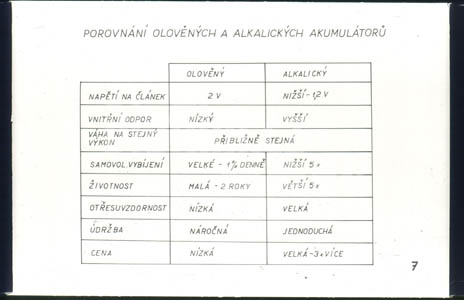 POROVNÁNÍ OLOVĚNÝCH A ALKALICKÝCH AKUMULÁTORŮ
OLOVĚNÝ ALKALICKÝ
NAPĚTÍ NA ČLÁNEK 2 V NIŽŠÍ - 1,2 V
VNITŘNÍ ODPOR NÍZKÝ VYŠŠÍ
VÁHA NA STEJNÝ
VÝKON PŘIBLIŽNĚ STEJNÁ
SAMOVOL. VYBÍJENÍ VELKÉ - 1% DENNĚ NIŽŠÍ 5x
ŽIVOTNOST MALÁ - 2 ROKY VĚTŠÍ 5x
OTŘESUVZDORNOST NÍZKÁ VELKÁ
ÚDRŽBA NÁROČNÁ JEDNODUCHÁ
CENA NÍZKÁ VELKÁ - 3x VÍCE
7